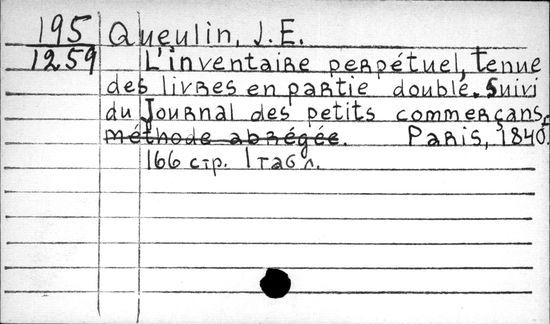 195 Queulin, J.E.
1259 L'inventaire perpétuel, tenue
des livres en partie double. Suivi
du Journal des petits commerçans.
méthode abrégée. Paris, 1840.
166 стр. 1 табл.